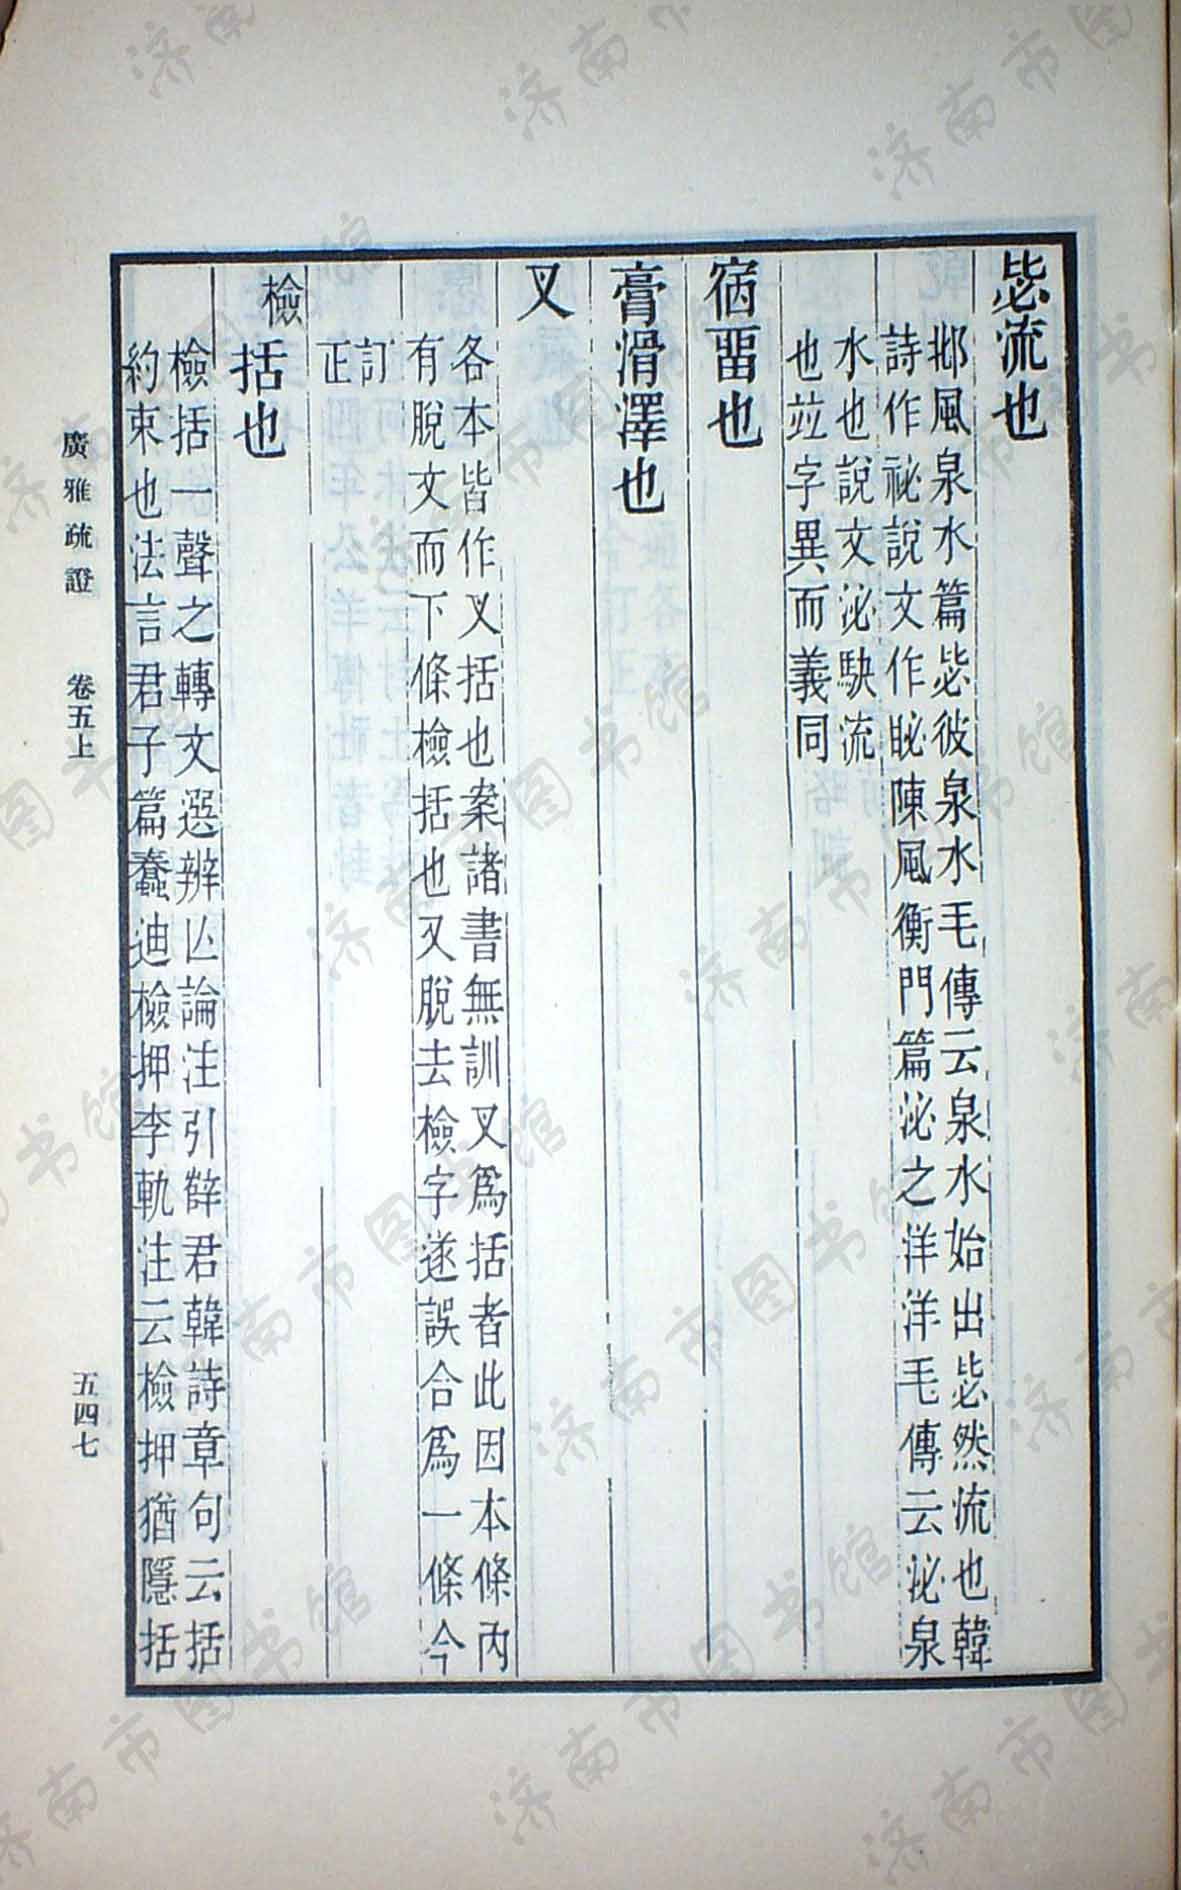 毖流也
邶風泉水篇毖彼泉水毛傳云泉水始出毖然流也韓
詩作祕說文作䀣陳風衡門篇泌之洋洋毛傳云泌泉
水也說文泌駃流
也竝字異而義同
宿畱也
膏滑澤也
叉
各本皆作叉括也案諸書無訓叉爲括者此因本條內
有脫文而下條檢括也又脫去檢字遂誤合爲一條今
訂
正
檢
括也
檢括一聲之轉文選辨亾論注引薛君韓詩章句云括
約束也法言君子篇蠢迪檢押李軌注云檢押猶隱括
廣雅疏證 卷五上 五四七
济南市图书馆